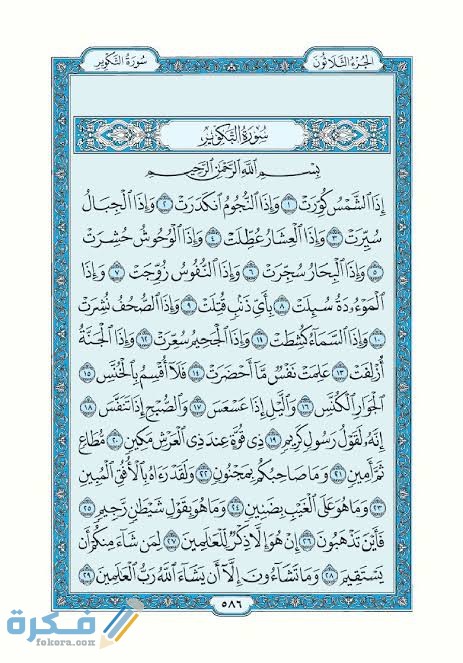 سُورَةُ التَّكْوِيرِ الجُزْءُ الثَّلَاثُونَ
سُورَةُ التَّكْوِيرِ
بِسْمِ اللَّهِ الرَّحْمَٰنِ الرَّحِيمِ
إِذَا الشَّمْسُ كُوِّرَتْ ١ وَإِذَا النُّجُومُ انكَدَرَتْ ٢ وَإِذَا الْجِبَالُ
سُيِّرَتْ ٣ وَإِذَا الْعِشَارُ عُطِّلَتْ ٤ وَإِذَا الْوُحُوشُ حُشِرَتْ
٥ وَإِذَا الْبِحَارُ سُجِّرَتْ ٦ وَإِذَا النُّفُوسُ زُوِّجَتْ ٧ وَإِذَا
الْمَوْءُۥدَةُ سُئِلَتْ ٨ بِأَيِّ ذَنۢبٍ قُتِلَتْ ٩ وَإِذَا الصُّحُفُ نُشِرَتْ
١٠ وَإِذَا السَّمَآءُ كُشِطَتْ ١١ وَإِذَا الْجَحِيمُ سُعِّرَتْ ١٢ وَإِذَا الْجَنَّةُ
أُزْلِفَتْ ١٣ عَلِمَتْ نَفْسٌ مَّآ أَحْضَرَتْ ١٤ فَلَآ أُقْسِمُ بِالْخُنَّسِ ١٥
الْجَوَارِ الْكُنَّسِ ١٦ وَالَّيْلِ إِذَا عَسْعَسَ ١٧ وَالصُّبْحِ إِذَا تَنَفَّسَ ١٨
إِنَّهُۥ لَقَوْلُ رَسُولٍ كَرِيمٍ ١٩ ذِي قُوَّةٍ عِندَ ذِي الْعَرْشِ مَكِينٍ ٢٠ مُّطَاعٍ
ثَمَّ أَمِينٍ ٢١ وَمَا صَاحِبُكُم بِمَجْنُونٍ ٢٢ وَلَقَدْ رَءَاهُ بِالْأُفُقِ الْمُبِينِ
٢٣ وَمَا هُوَ عَلَى الْغَيْبِ بِضَنِينٍ ٢٤ وَمَا هُوَ بِقَوْلِ شَيْطَٰنٍ رَّجِيمٍ ٢٥
فَأَيْنَ تَذْهَبُونَ ٢٦ إِنْ هُوَ إِلَّا ذِكْرٌ لِّلْعَٰلَمِينَ ٢٧ لِمَن شَآءَ مِنكُمْ أَن
يَسْتَقِيمَ ٢٨ وَمَا تَشَآءُونَ إِلَّآ أَن يَشَآءَ اللَّهُ رَبُّ الْعَٰلَمِينَ ٢٩
٥٨٦
فكرة
fokora.com
فكرة
fokora.com